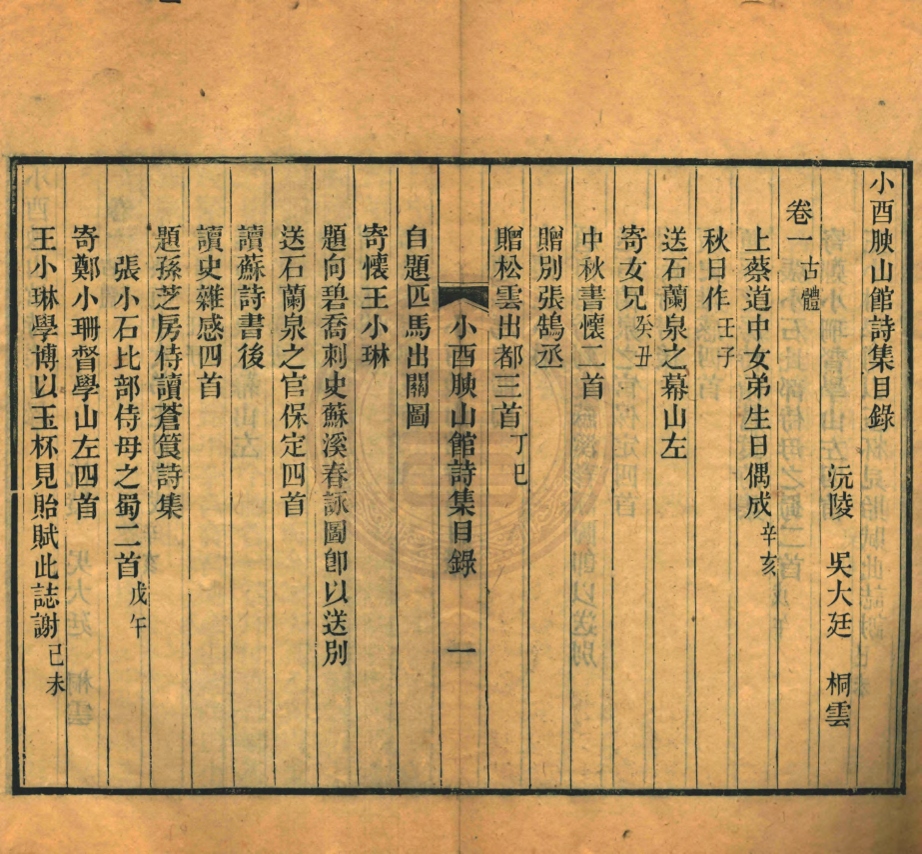 小酉腴山館詩集目錄
沅陵 吳大廷 桐雲
卷一 古體
上蔡道中女弟生日偶成 辛亥
秋日作 壬子
送石蘭泉之幕山左
寄女兄 癸丑
中秋書懷二首
贈別張鵠丞
贈松雲出都三首 丁巳
小酉腴山館詩集目錄 一
自題匹馬出關圖
寄懷王小琳
題向碧喬刺史蘇溪春詠圖卽以送別
送石蘭泉之官保定四首
讀蘇詩書後
讀史雜感四首
題孫芝房侍讀蒼筤詩集
張小石比部侍母之蜀二首 戊午
寄鄭小珊督學山左四首
王小琳學博以玉杯見貽賦此誌謝 己未